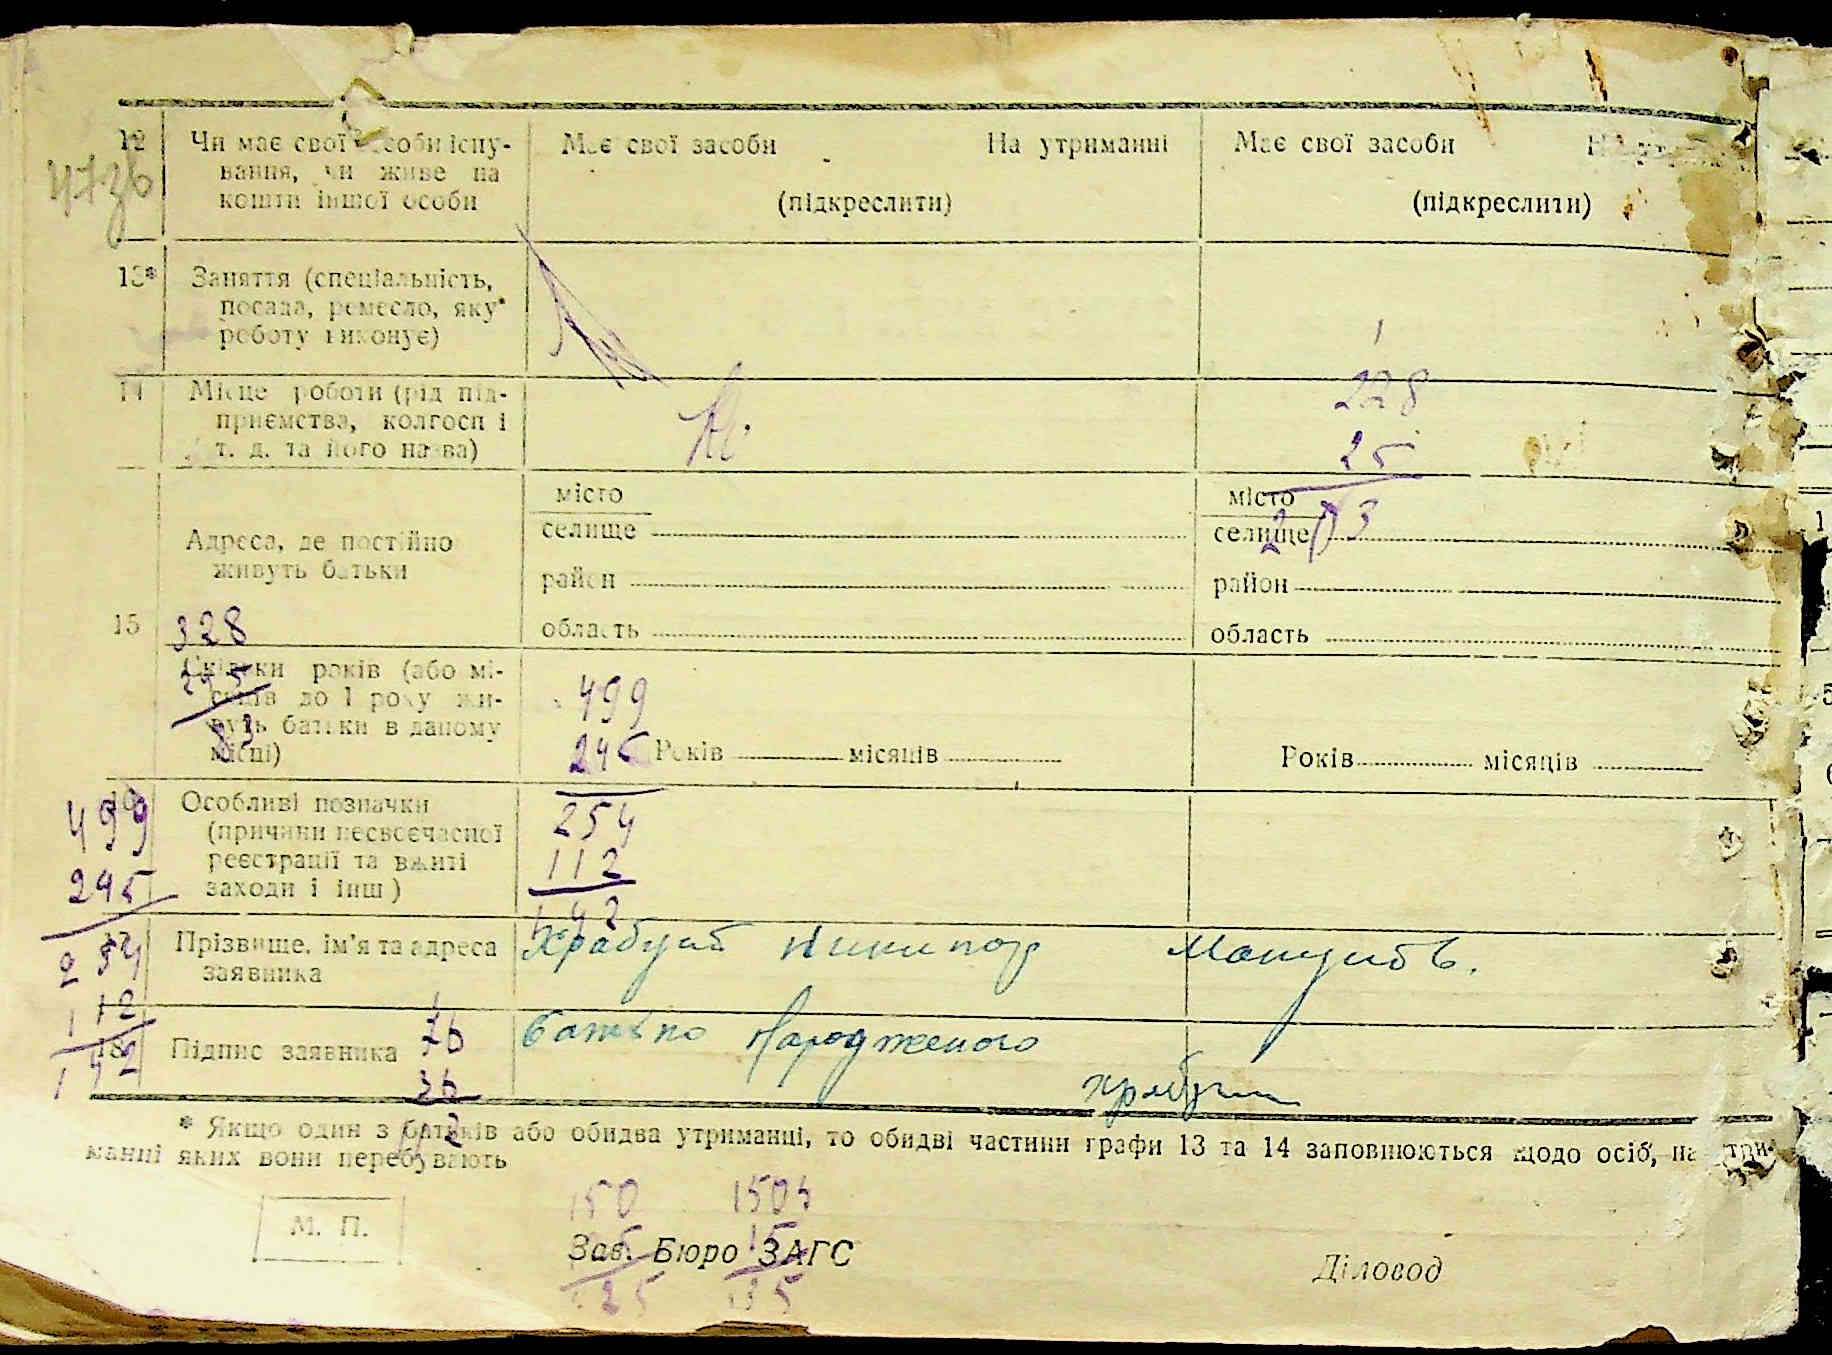 12 Чи має свої засоби існу-
вання, чи живе на
кошти іншої особи
Має свої засоби На утриманні
(підкреслити)
Має свої засоби На
(підкреслити)
13* Заняття (спеціальність,
посада, ремесло, яку
роботу виконує)
14 Місце роботи (рід під-
приємства, колгосп і
т. д. та його назва)
228
25
203
15 Адреса, де постійно
живуть батьки
місто
селище
район
область
місто
селище
район
область
328
245
83
Скільки років (або мі-
сяців до 1 року жи-
вуть батьки в даному
місці)
499
245
Років місяців
Років місяців
254
112
142
16 Особливі позначки
(причини несвоєчасної
реєстрації та вжиті
заходи і інш)
499
245
254
112
142
17 Прізвище, ім'я та адреса
заявника
Никипор
18 Підпис заявника
батько народженого
* Якщо один з батьків або обидва утриманці, то обидві частини графи 13 та 14 заповнюються щодо осіб, на утри-
манці яких вони перебувають
М. П.
150
Зав. Бюро ЗАГС
Діловод